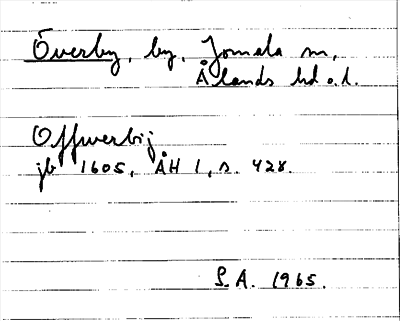 Överby, by, Jomala sn,
Ålands hd o. l.
Offwerbij
jb 1605, ÅH 1, s. 428.
S. A. 1965.